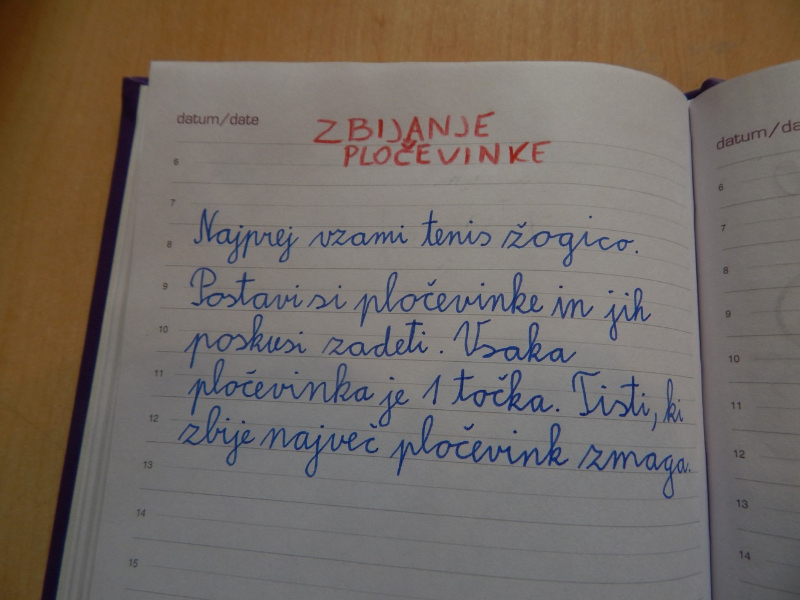 datum/date
ZBIJANJE
PLOČEVINKE
6
7
Najprej vzami tenis žogico.
8
9
Postavi si pločevinke in jih
10
poskusi zadeti. Vsaka
11
pločevinka je 1 točka. Tisti, ki
12
zbije največ pločevink zmaga.
13
14
15
datum/da
6
7
8
9
10
11
12
13
14